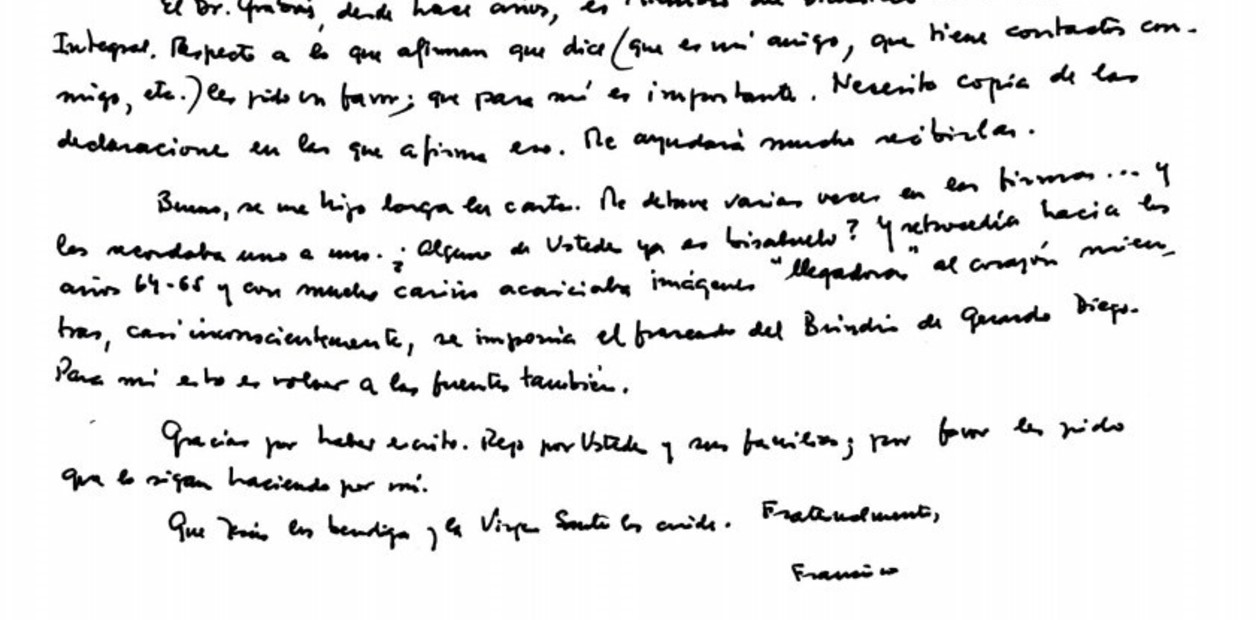 El Dr. Grabois, desde hace años, es Miembro del Dicasterio
Integral. Respecto a lo que afirman que dice (que es mi amigo, que tiene contactos con-
migo, etc.) les pido un favor; que para mí es importante. Necesito copia de las
declaraciones en las que afirma eso. Me ayudará mucho recibirlas.
Bueno, se me hizo larga la carta. Me detuve varias veces en las firmas... y
los recordaba uno a uno. ¿Alguno de Ustedes ya es bisabuelo? Y retrocedía hacia los
años 64-65 y con mucho cariño acariciaba imágenes "llegadoras" al corazón mien-
tras, casi inconscientemente, se imponía el fraseado del Brindis de Gerardo Diego.
Para mí esto es volver a las fuentes también.
Gracias por haber escrito. Rezo por Ustedes y sus familias; por favor les pido
que lo sigan haciendo por mí.
Que Jesús los bendiga y la Virgen Santa los cuide. Fraternalmente,
Francisco